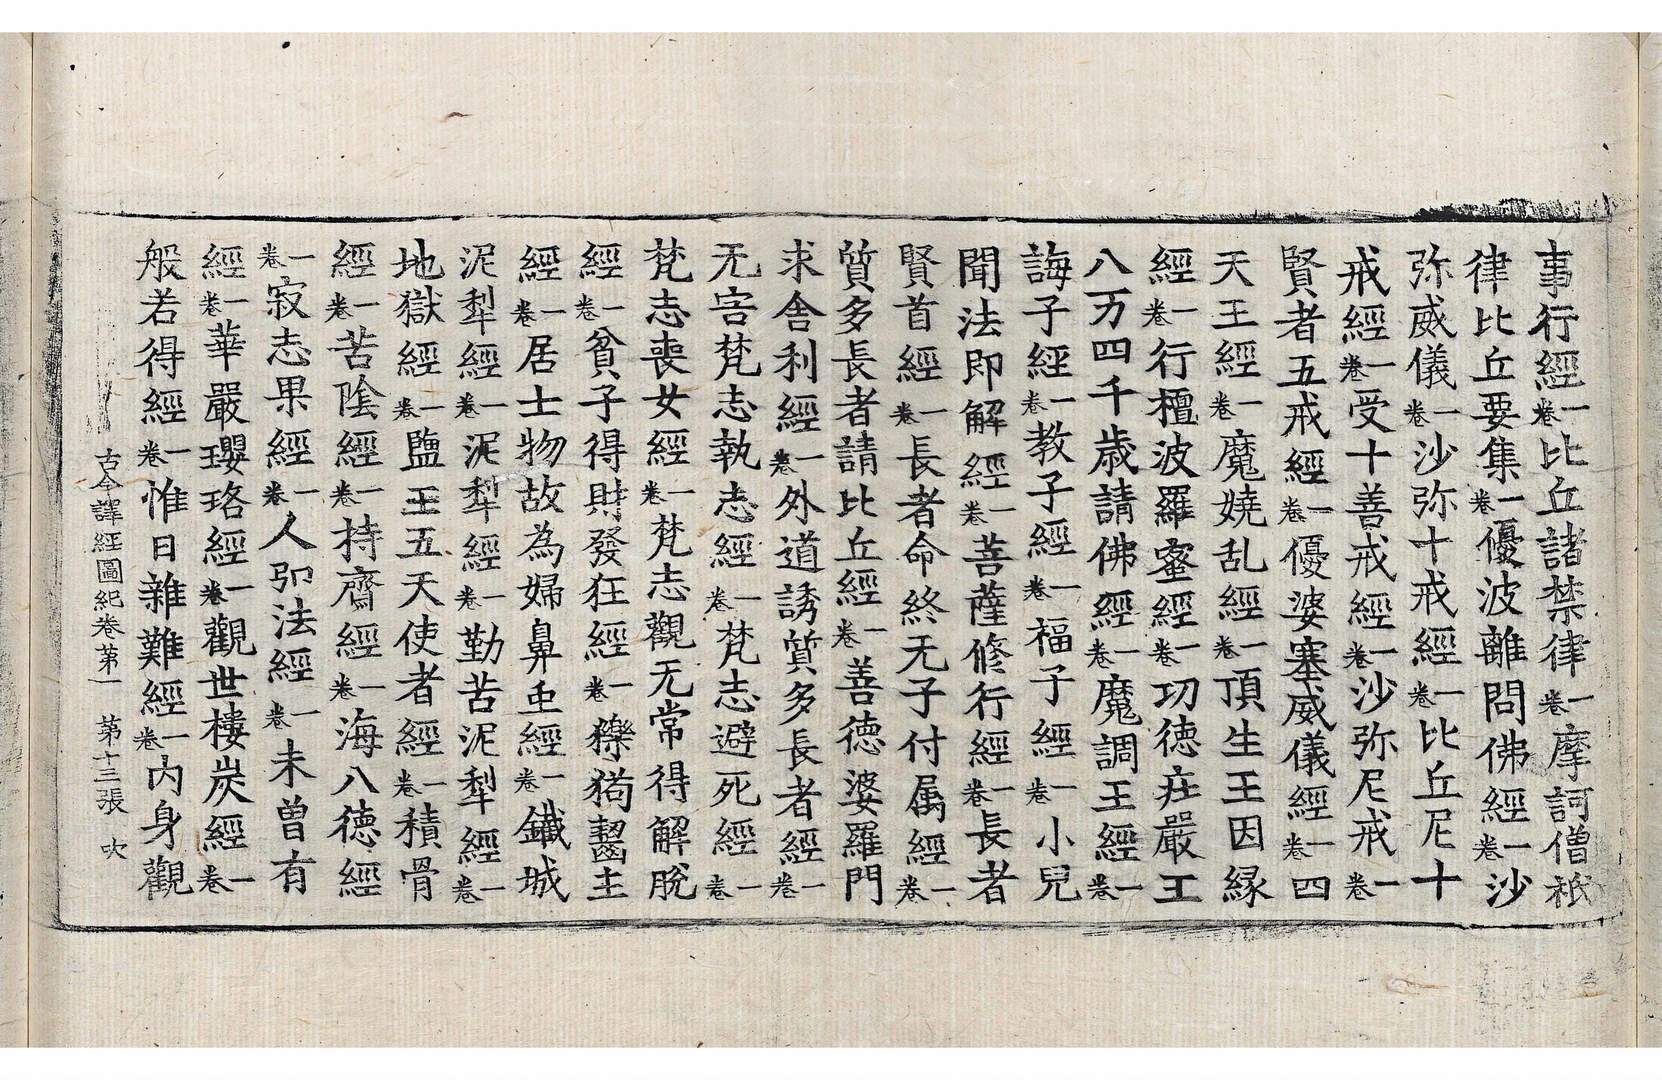 事行經一卷比丘諸禁律一卷摩訶僧祇
律比丘要集一卷優波離問佛經一卷沙
弥威儀一卷沙弥十戒經一卷比丘尼十
戒經一卷受十善戒經一卷沙弥尼戒一卷
賢者五戒經一卷優婆塞威儀經一卷四
天王經一卷魔嬈乱經一卷頂生王因縁
經一卷行檀波羅蜜經一卷功徳庄嚴王
八万四千歳請佛經一卷魔調王經一卷
誨子經一卷教子經一卷福子經一卷小兒
聞法即解經一卷菩薩修行經一卷長者
賢首經一卷長者命終无子付属經一卷
質多長者請比丘經一卷善徳婆羅門
求舍利經一卷外道誘質多長者經一卷
无害梵志執志經一卷梵志避死經一卷
梵志喪女經一卷梵志觀无常得解脫
經一卷貧子得財發狂經一卷㹎狗齧主
經一卷居士物故為婦鼻虫經一卷鐵城
泥犁經一卷泥犁經一卷勤苦泥犁經一卷
地獄經一卷鹽王五天使者經一卷積骨
經一卷苦陰經一卷持齋經一卷海八徳經
一卷寂志果經一卷人卬法經一卷未曽有
經一卷華嚴瓔珞經一卷觀世樓炭經一卷
般若得經一卷惟日雜難經一卷內身觀
古今譯經圖紀卷第一 第十三張 吹